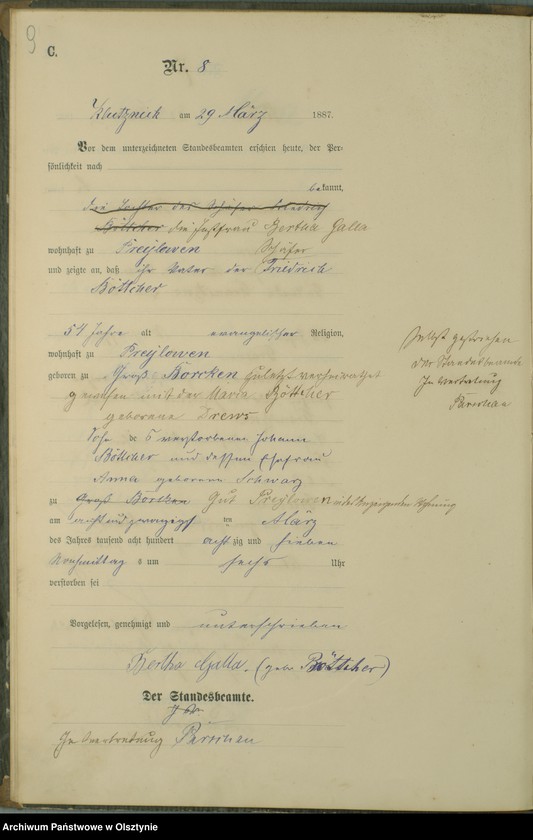 9
C.
Nr. 8
Klutzneck am 29 März 1887.
Vor dem unterzeichneten Standesbeamten erschien heute, der Per-
sönlichkeit nach
bekannt,
die Tochter des Schäfer Friedrich
Böttcher die Instfrau Bertha Galla
wohnhaft zu Preylowen
und zeigte an, daß ihr Vater der Schäfer Friedrich
Böttcher,
54 Jahre alt evangelischer Religion,
wohnhaft zu Preylowen
geboren zu Groß Börcken zuletzt verheirathet
gewesen mit der Maria Böttcher
geborene Drews
Sohn des verstorbenen Johann
Böttcher und dessen Ehefrau
Anna geborene Schwarz
zu Groß Börcken Gut Preylowen in der Wohnung
am acht und zwanzigsten März
des Jahres tausend acht hundert achtzig und sieben
Vormittag s um sechs Uhr
verstorben sei
Vorgelesen, genehmigt und unterschrieben
Bertha Galla. (geb. Böttcher)
Der Standesbeamte.
In Vertretung
Selbst gestrichen
Der Standesbeamte
In Vertretung
Archiwum Państwowe w Olsztynie